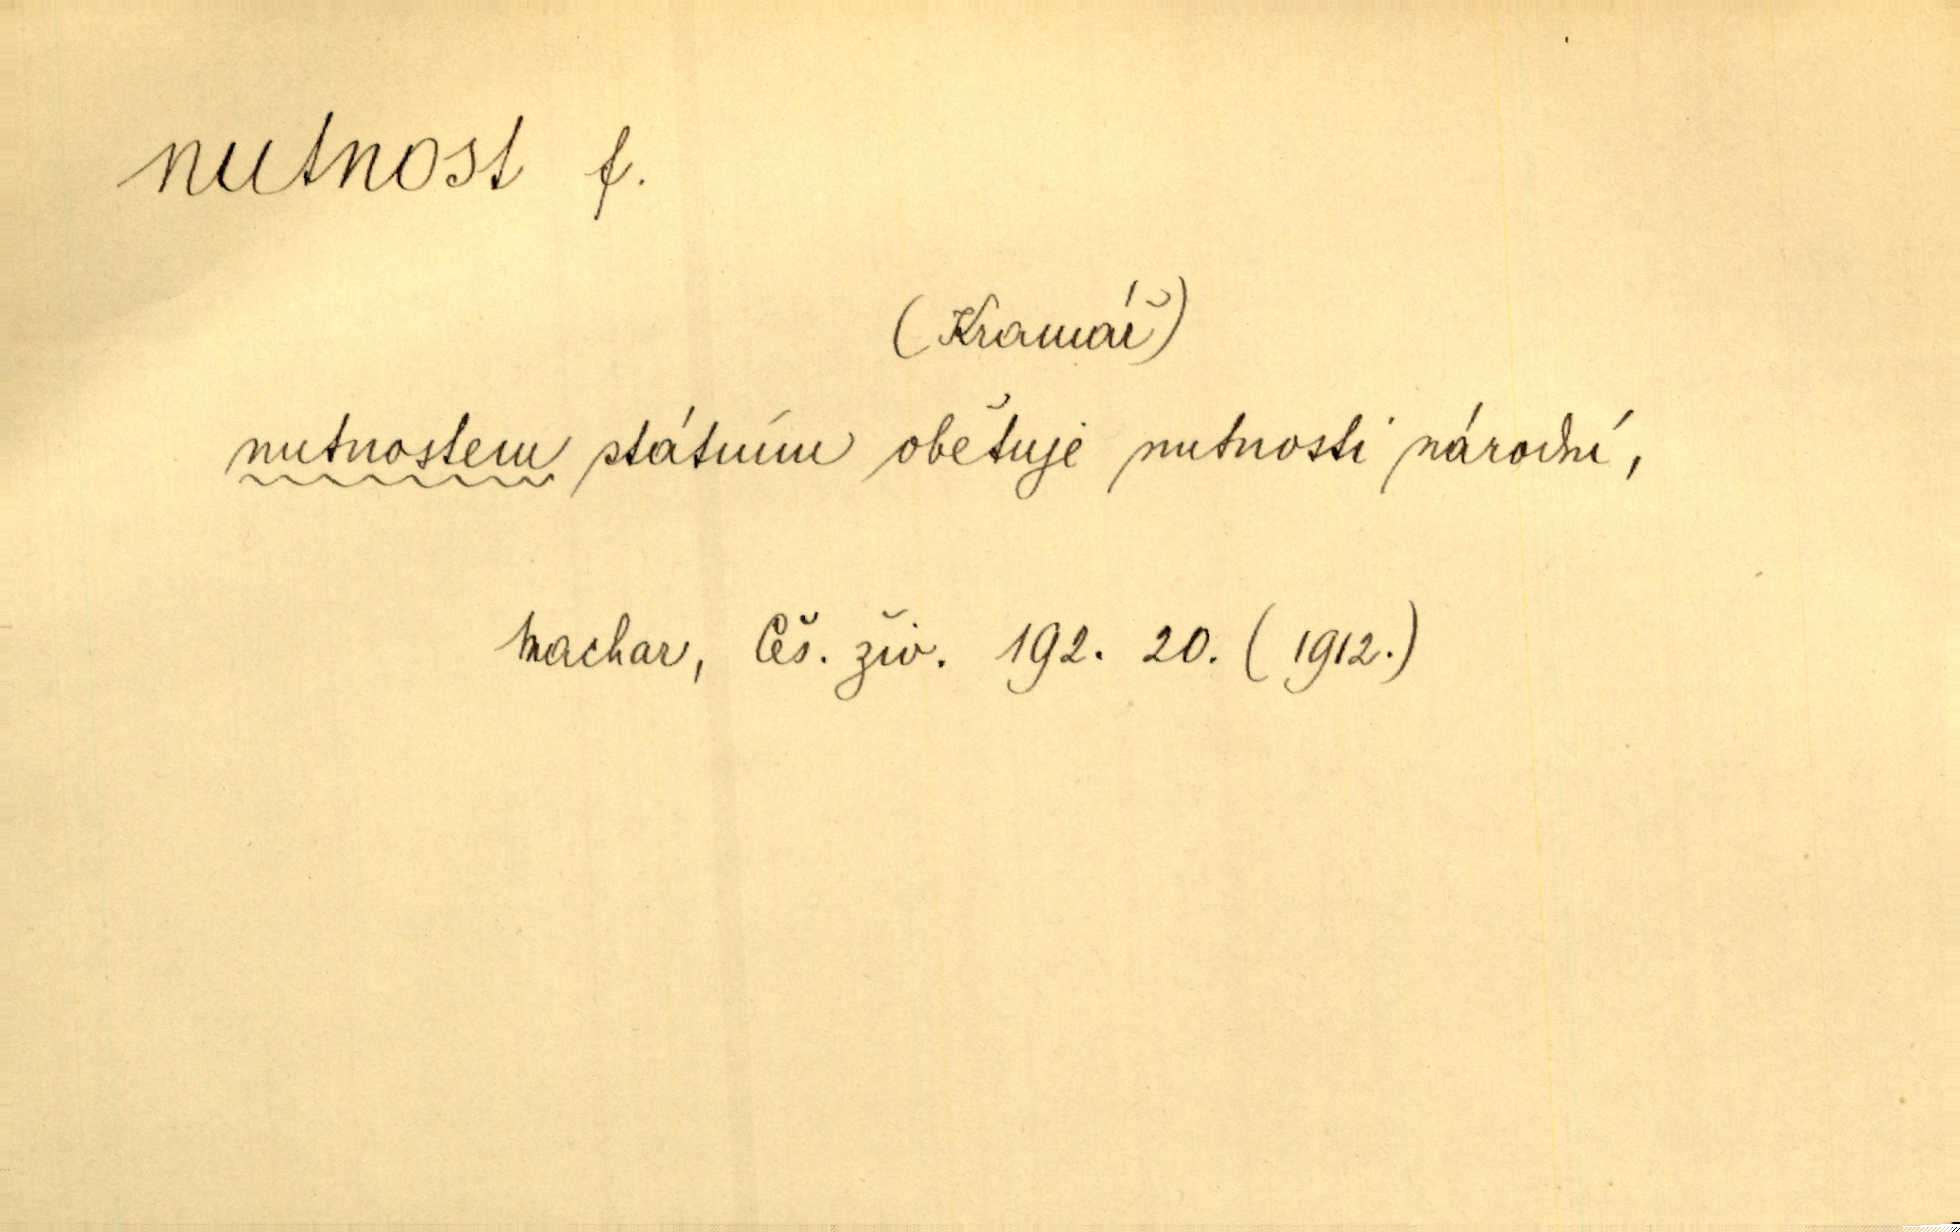 nutnost f.
(Kramář)
nutnostem státním obětuje nutnosti národní,
Machar, Čes. živ. 192. 20. (1912.)